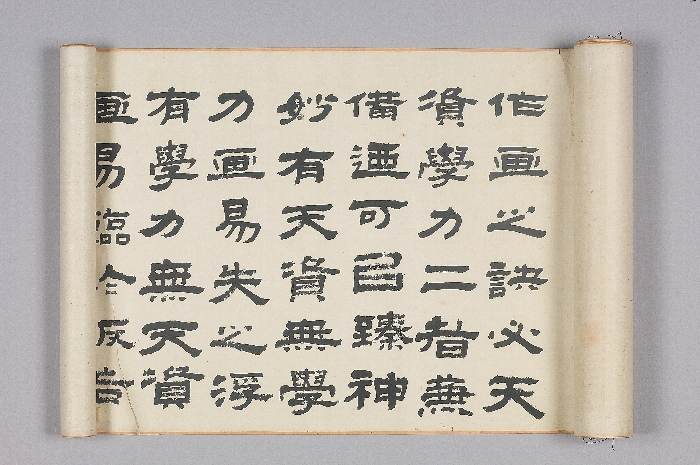 作画之訣必天
資學力二者兼
備迺可㠯臻神
妙有天資無學
力画易失之浮
有學力無天資
画易